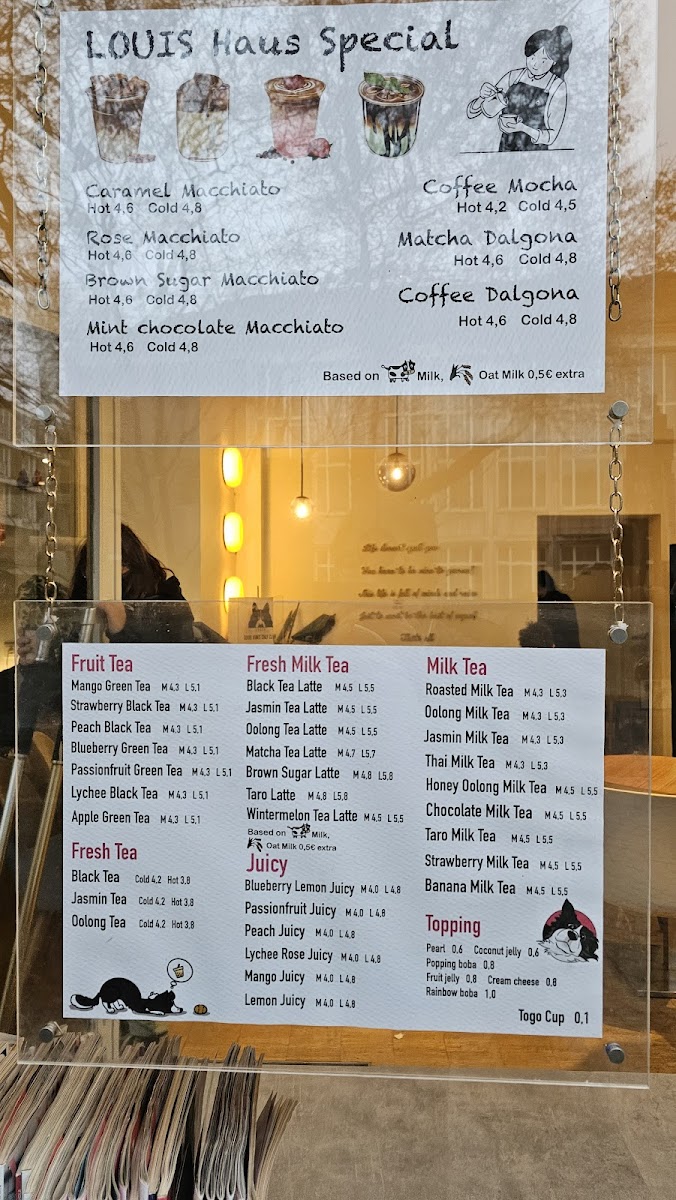 LOUIS Haus Special
Caramel Macchiato
Hot 4,6 Cold 4,8
Rose Macchiato
Hot 4,6 Cold 4,8
Brown Sugar Macchiato
Hot 4,6 Cold 4,8
Mint chocolate Macchiato
Hot 4,6 Cold 4,8
Coffee Mocha
Hot 4,2 Cold 4,5
Matcha Dalgona
Hot 4,6 Cold 4,8
Coffee Dalgona
Hot 4,6 Cold 4,8
Based on Milk, Oat Milk 0,5€ extra
Fruit Tea
Mango Green Tea M 4,3 L 5,1
Strawberry Black Tea M 4,3 L 5,1
Peach Black Tea M 4,3 L 5,1
Blueberry Green Tea M 4,3 L 5,1
Passionfruit Green Tea M 4,3 L 5,1
Lychee Black Tea M 4,3 L 5,1
Apple Green Tea M 4,3 L 5,1
Fresh Tea
Black Tea Cold 4,2 Hot 3,8
Jasmin Tea Cold 4,2 Hot 3,8
Oolong Tea Cold 4,2 Hot 3,8
Fresh Milk Tea
Black Tea Latte M 4,5 L 5,5
Jasmin Tea Latte M 4,5 L 5,5
Oolong Tea Latte M 4,5 L 5,5
Matcha Tea Latte M 4,7 L 5,7
Brown Sugar Latte M 4,8 L 5,8
Taro Latte M 4,8 L 5,8
Wintermelon Tea Latte M 4,5 L 5,5
Based on Milk,
Oat Milk 0,5€ extra
Juicy
Blueberry Lemon Juicy M 4,0 L 4,8
Passionfruit Juicy M 4,0 L 4,8
Peach Juicy M 4,0 L 4,8
Lychee Rose Juicy M 4,0 L 4,8
Mango Juicy M 4,0 L 4,8
Lemon Juicy M 4,0 L 4,8
Milk Tea
Roasted Milk Tea M 4,3 L 5,3
Oolong Milk Tea M 4,3 L 5,3
Jasmin Milk Tea M 4,3 L 5,3
Thai Milk Tea M 4,3 L 5,3
Honey Oolong Milk Tea M 4,5 L 5,5
Chocolate Milk Tea M 4,5 L 5,5
Taro Milk Tea M 4,5 L 5,5
Strawberry Milk Tea M 4,5 L 5,5
Banana Milk Tea M 4,5 L 5,5
Topping
Pearl 0,6 Coconut jelly 0,6
Popping boba 0,8
Fruit jelly 0,8 Cream cheese 0,8
Rainbow boba 1,0
Togo Cup 0,1